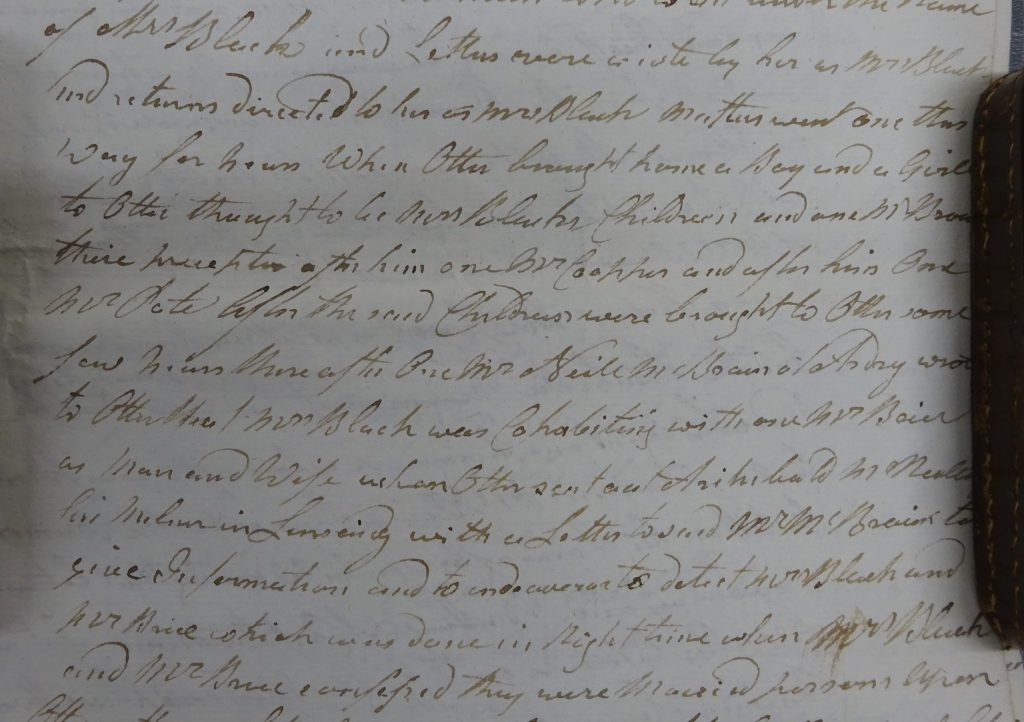 under the Name
of Mrs Black and Letters were wrote by her as Mrs Black
and returns directed to her as Mrs Black Matters went one this
way for years When Otter brought home a Boy and a Girle
to Otter thought to be Mrs Blacks Children and one Mr Brow
there preceptor after him one Mr Cooper and after him One
Mr Pate After the said Children were brought to Otter some
few years there after One Mr Neile McBrain of Ardry wrot
to Otter that Mrs Black was Cohabiting with one Mr Brice
as Man and Wife when Otter sent out Archibald McNeill
his in with a Letter to said Mr McBrain to
give Information and to endeavour to detect Mrs Black and
Mr Brice which was done in Night time when Mrs Black
and Mr Brice confessed they were Maried persons Upon